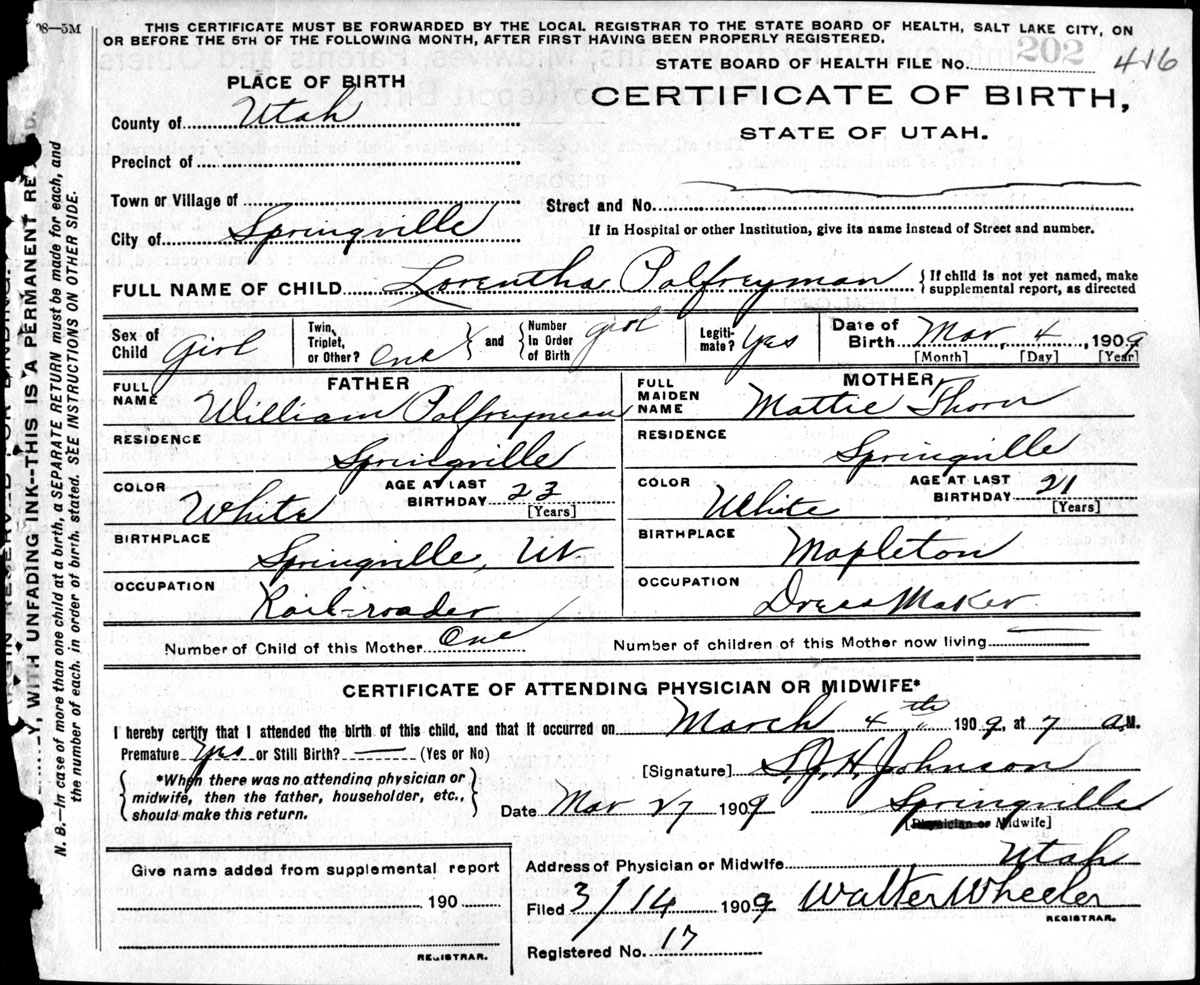 98—5M
THIS CERTIFICATE MUST BE FORWARDED BY THE LOCAL REGISTRAR TO THE STATE BOARD OF HEALTH, SALT LAKE CITY, ON
OR BEFORE THE 5TH OF THE FOLLOWING MONTH, AFTER FIRST HAVING BEEN PROPERLY REGISTERED.
STATE BOARD OF HEALTH FILE No. 202 416
PLACE OF BIRTH
CERTIFICATE OF BIRTH,
STATE OF UTAH.
County of Utah
Precinct of
Town or Village of
Street and No.
City of Springville
If in Hospital or other Institution, give its name instead of Street and number.
FULL NAME OF CHILD Lorentha Palfreyman {If child is not yet named, make
supplemental report, as directed
Sex of Child Girl Twin, Triplet, or Other? One } and { Number In Order of Birth girl Legiti-mate? Yes Date of Birth Mar, 4, 1909
[Month] [Day] [Year]
FATHER MOTHER
FULL NAME William Palfreyman FULL MAIDEN NAME Mattie Thorn
RESIDENCE Springville RESIDENCE Springville
COLOR White AGE AT LAST BIRTHDAY 23 [Years] COLOR White AGE AT LAST BIRTHDAY 21 [Years]
BIRTHPLACE Springville, Ut BIRTHPLACE Mapleton
OCCUPATION Rail-roader OCCUPATION Dress Maker
Number of Child of this Mother One Number of children of this Mother now living —
CERTIFICATE OF ATTENDING PHYSICIAN OR MIDWIFE*
I hereby certify that I attended the birth of this child, and that it occurred on March 4th 1909, at 7 a.M.
Premature Yes or Still Birth? — (Yes or No)
[Signature] S.J.H. Johnson
{*When there was no attending physician or
midwife, then the father, householder, etc.,
should make this return.}
Date Mar 27 1909 Springville
[Physician or Midwife]
Address of Physician or Midwife Utah
Give name added from supplemental report
190
REGISTRAR.
Filed 3/14 1909 Walter Wheeler
REGISTRAR.
Registered No. 17
WITH UNFADING INK--THIS IS A PERMANENT
N. B.—In case of more than one child at a birth, a SEPARATE RETURN must be made for each, and
the number of each, in order of birth, stated. SEE INSTRUCTIONS ON OTHER SIDE.